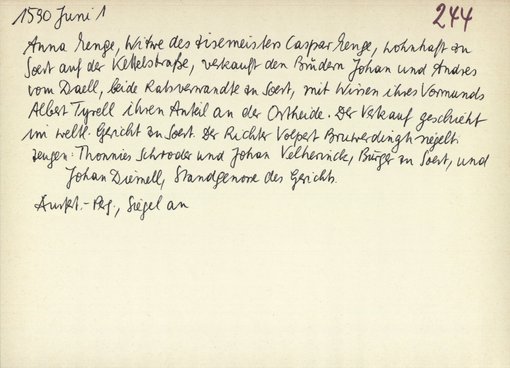 1590 Juni 1
244
Anna Menge, Witwe des Zisemeisters Caspar Menge, wohnhaft zu
Soest auf der Kettelstraße, verkauft den Brüdern Johan und Andres
vom Daell, beide Ratsverwandte zu Soest, mit Wissen ihres Vormunds
Albert Tyrell ihren Anteil an der Ostheide. Der Verkauf geschieht
im weltl. Gericht zu Soest. Der Richter Volpert siegelt
Zeugen: Thonnies Schroder und Johan, Bürger zu Soest, und
Johan, Standgenosse des Gerichts.
Ausf.-Perg., Siegel an